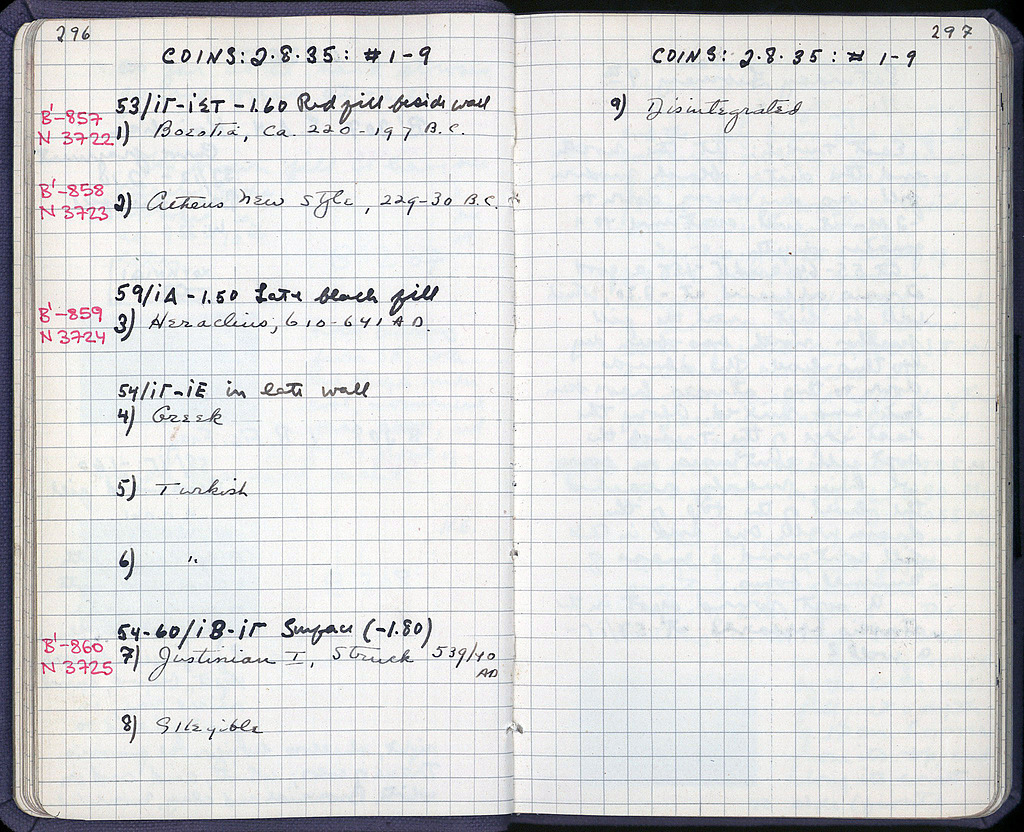 296
COINS: 2·8·35: # 1-9
53/ΙΓ-ΙΣΤ -1.60 Red fill beside wall
B'-857
N 3722
1) Boeotia, ca. 220-197 B.C.
B'-858
N 3723
2) Athens New Style, 229-30 B.C.
59/ΙΑ -1.50 Late black fill
B'-859
N 3724
3) Heraclius, 610-641 AD.
54/ΙΓ-ΙΕ in late wall
4) Greek
5) Turkish
6) "
54-60/ΙΒ-ΙΓ Surface (-1.80)
B'-860
N 3725
7) Justinian I, Struck 539/40
AD
8) Illegible
297
COINS: 2·8·35: # 1-9
9) Disintegrated